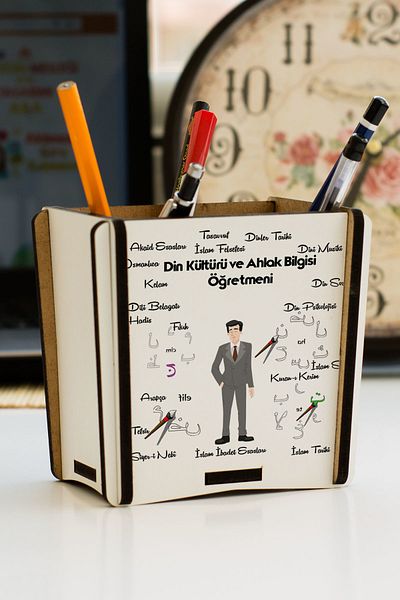 11
12
10
9
Tasavvuf
Dinler Tarihi
Akaid Esasları
İslam Felsefesi
Dini Musiki
Osmanlıca
Din Kültürü ve Ahlak Bilgisi
Öğretmeni
Kelam
Dili Belagatı
Din Psikolojisi
Hadis
Fıkıh
Kuran-ı Kerim
Arapça
Siyer-i Nebi
İslam İbadet Esasları
İslam Tarihi